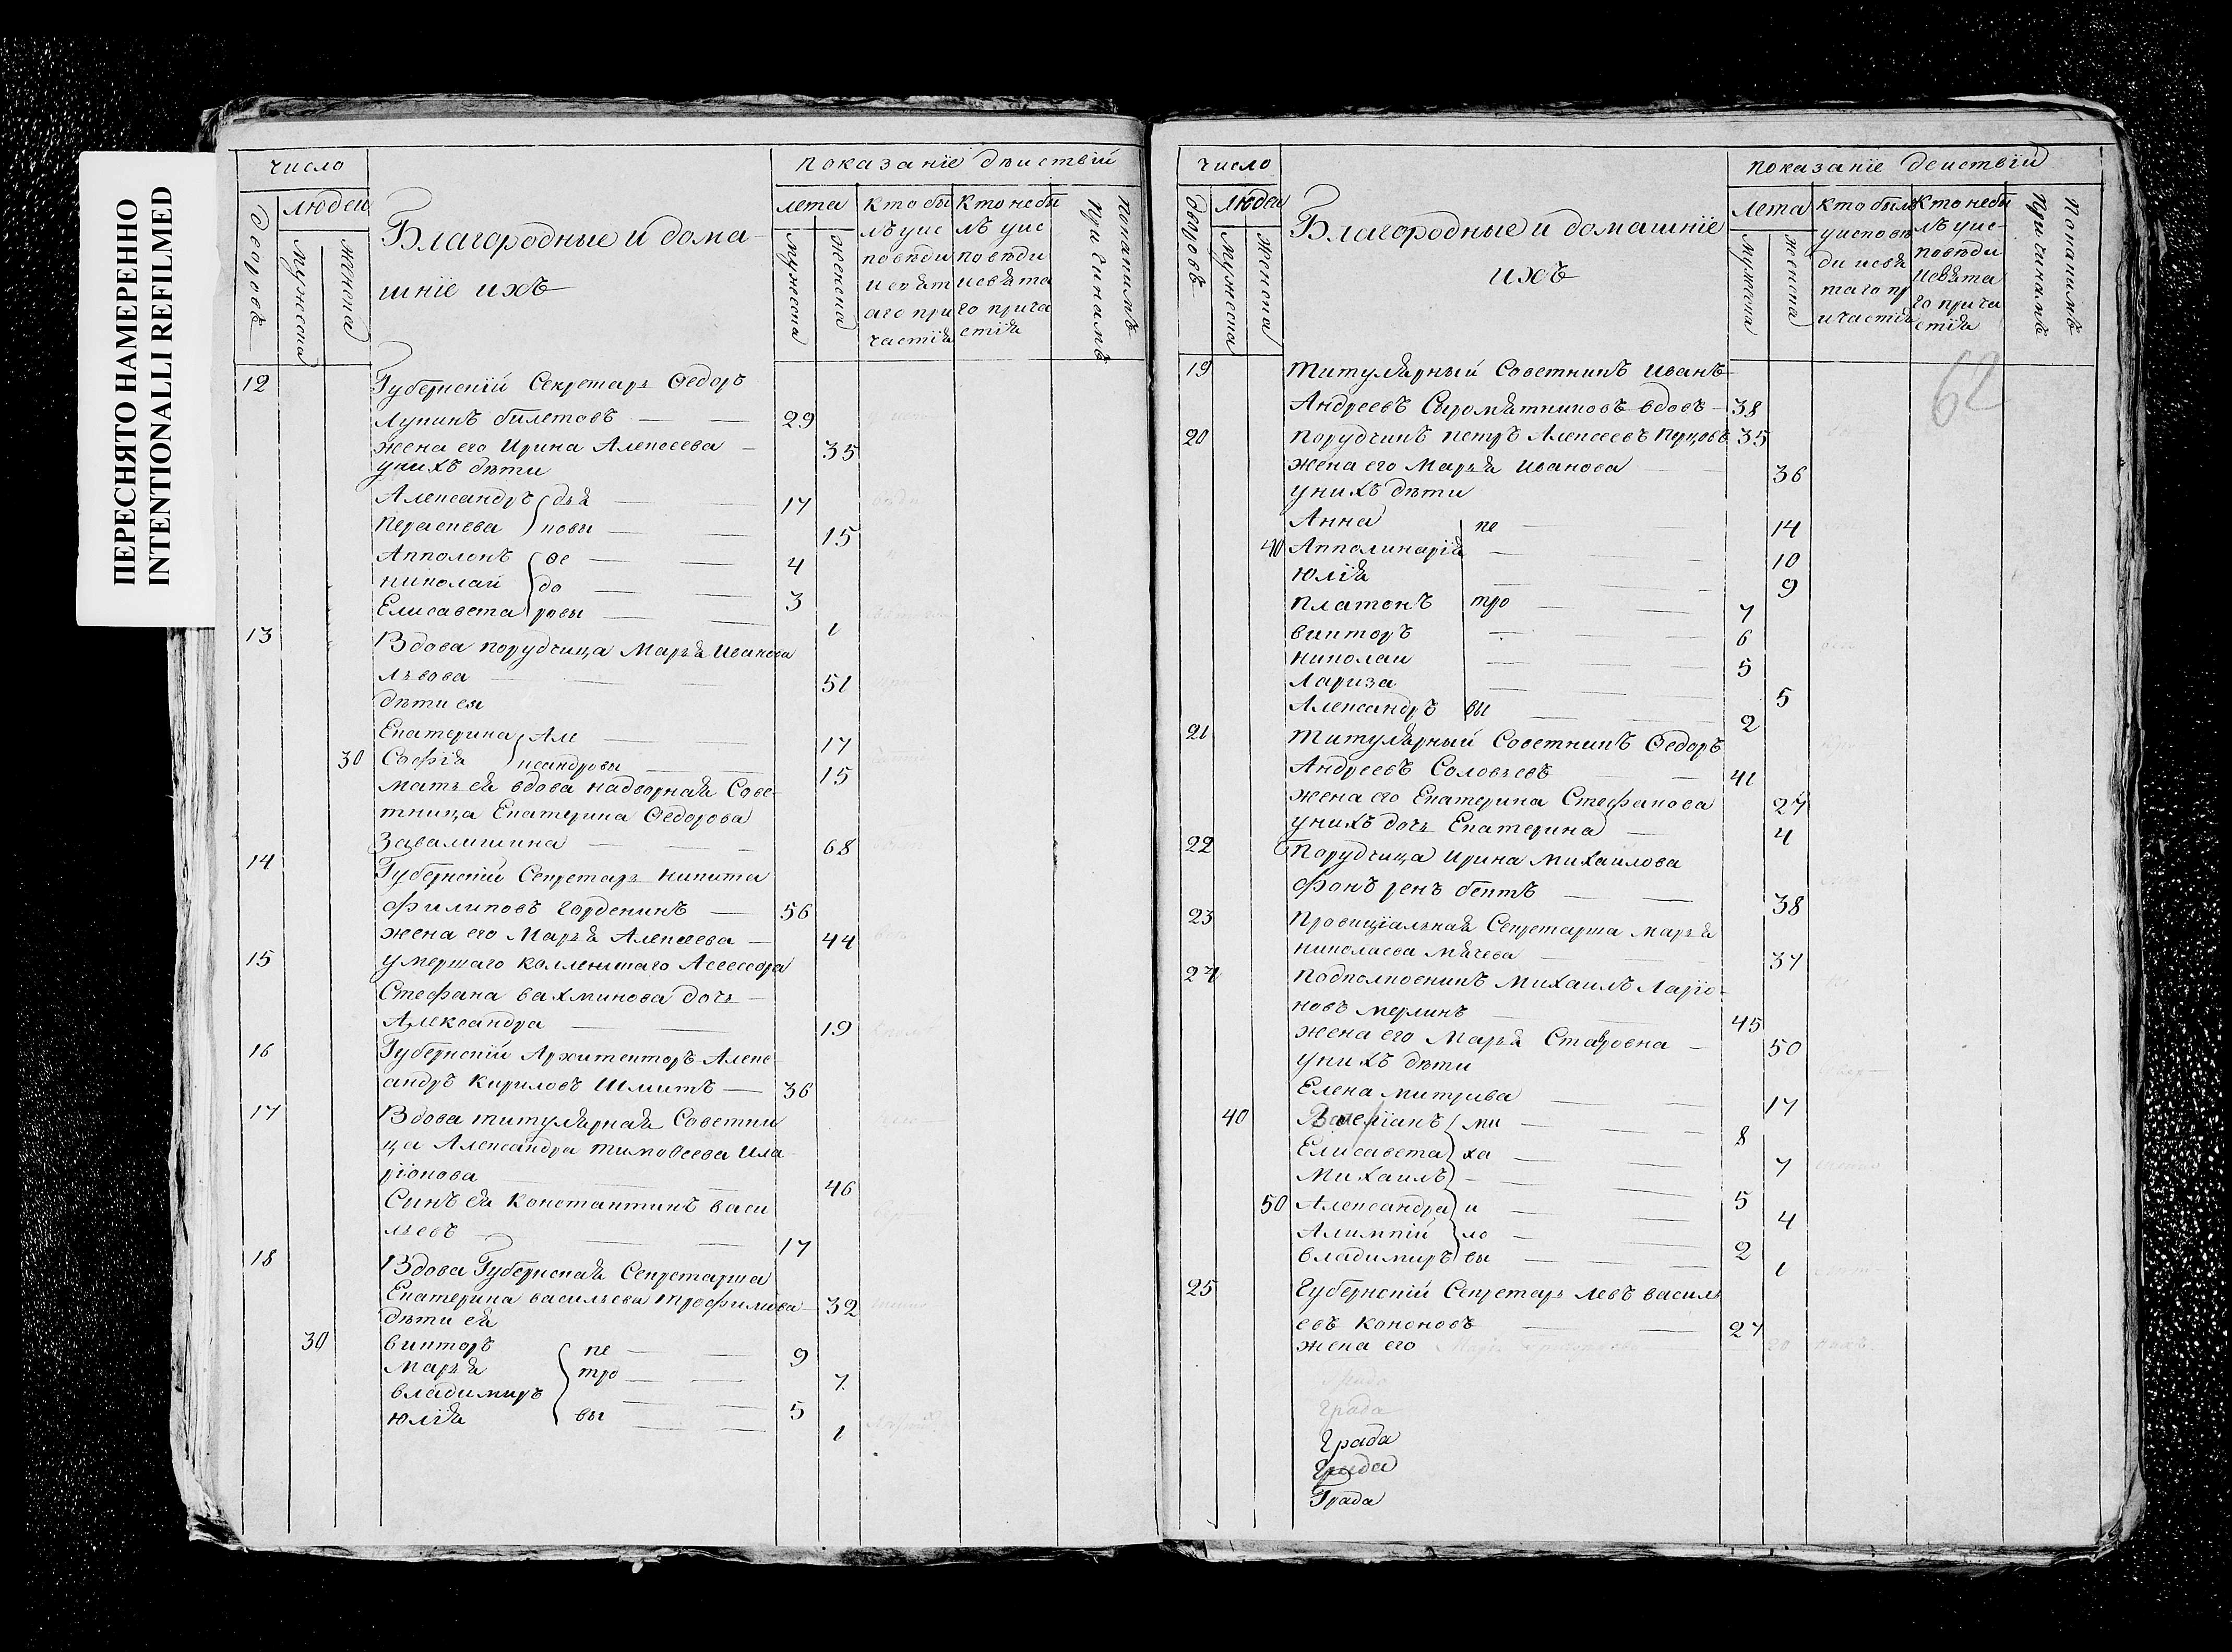 ПЕРЕСНЯТО НАМЕРЕННО
INTENTIONALLI REFILMED
число
показаніе дѣиствіи
людеи
дворовъ
мужеска
женска
Благородные и дома-
шніе ихъ
лета
мужеска
женска
кто бы
лъ уис
поведи
и свят
аго при
частія
кто небы
лъ уис
поведи
исвята
го прича
стія
Покакимъ
причинамъ
12
Губернскій Секретарь Ѳедоръ
Лукинъ билетовъ 29
жена его Ирина Алексеева 35
унихъ дѣти
Александръ дья 17
Параскева ковы 15
Апполонъ Ѳе 4
николай до 3
Елисавета ровы 1
13 Вдова порудчица Марья Иванова
львова 51
дѣти ея
Екатерина Але 17
30 Софія ксандровы 15
мать ея вдова надворная Сове-
тница Екатерина Ѳедорова
Завалишина 68
14 Губернскій Секретарь никита
филиповъ Горденинъ 56
жена его Марья Алексеева 44
15 умершаго коллежшаго Асессора
Стефана вахминова дочь
Александра 19
16 Губернскіи Архитекторъ Алекс
андръ Кириловъ Шмитъ 36
17 Вдова титулярная Советни
ца Александра тимоѳеева Ила
ріонова 46
Синъ ея константинъ васи
льевъ 17
18 Вдова Губернская Секретарша
Екатерина васильева трофимова 32
дѣти ея
30 викторъ пе 9
Марья тро 7
владимиръ 5
юлія вы 1
число
показаніе деиствіи
дворовъ
людеи
мужеска
женска
Благородные и домашніе
ихъ
лета
мужеска
женска
кто былъ
уиспове
ди исвя
таго пр
ичастія
Кто небы
лъ уис-
поведи
исвята
го прича
стія
Покакимъ
причинамъ
62
19 титулярный Советникъ Иванъ
Андреевъ Сыромятниковъ вдовъ 38
20 порудчикъ петръ Алексеевъ Перцовъ 35
жена его Марья Иванова 36
унихъ дѣти
Анна пе 14
40 Апполинарія 10
юлія 9
платонъ тро 7
викторъ 6
николаи 5
Лариза 5
Александръ вы 2
21 титулярный Советникъ Ѳедоръ
Андреевъ Соловьевъ 41
жена его Екатерина Стефанова 27
унихъ дочь Екатерина 4
22 Порудчица Ирина Михаилова
фонъ ренъ бентъ 38
23 Провиціальная Секретарша Марья
николаева Мячева 37
24 подполковникъ Михаилъ Ларіо-
новъ мерлинъ 45
жена его Марья Ставровна 50
унихъ дѣти
Елена митрива 17
40 Валеріанъ ми 8
Елисавета ха 7
Михаилъ 5
50 Александра и 4
Алимпій ло 2
владимиръ вы 1
25 Губернскій Секретарь левъ василь
евъ Кононовъ 27
жена его
Града
Града
Града
Града